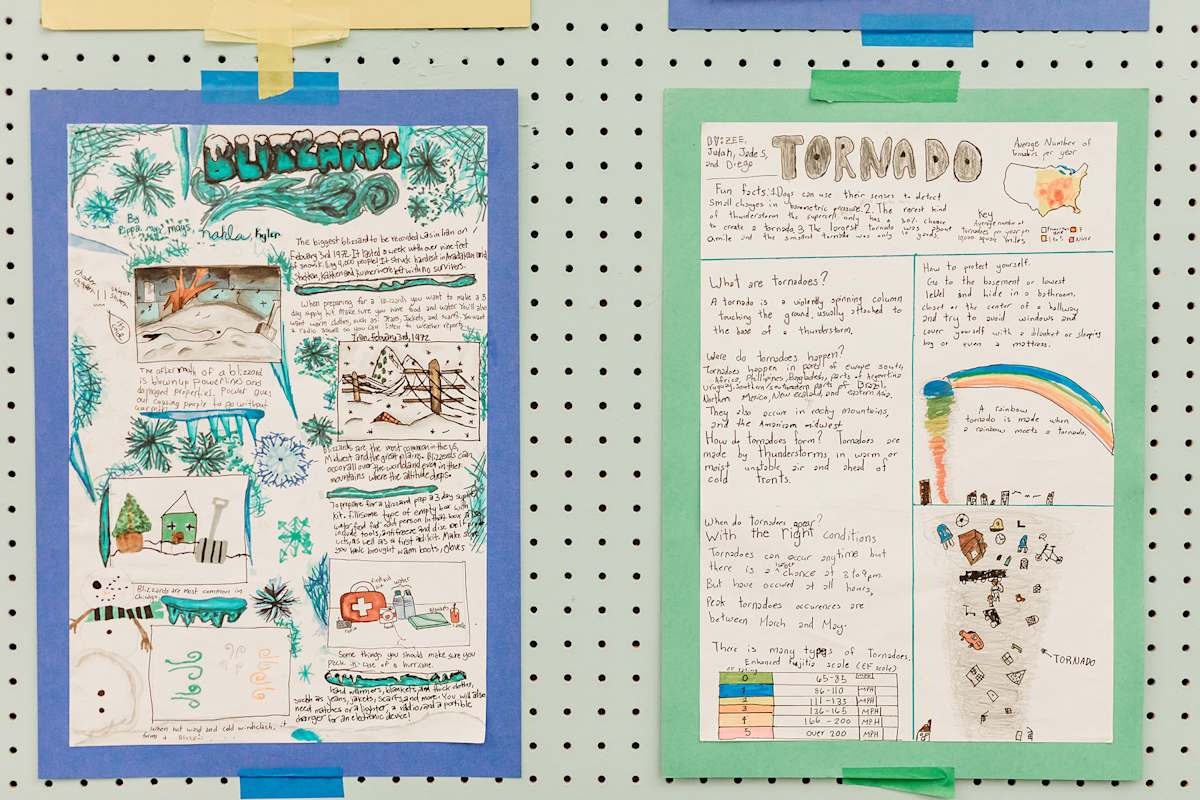 BLIZZARDS
By
Pippa, mays, nahla, Kyler
The biggest blizzard to be recorded was in Iran on
February 3rd 1972. It lasted a week with over nine feet
of snow
4,000 people! It struck hardest in
were left with no survivors.
When preparing for a blizzard you want to make a 3
day supply kit. Make sure you have food and water. You'll also
want warm clothes, such as: Jeans, Jackets, and scarfs. You want
a radio so you can listen to weather reports
Iran, february 3rd, 1972
The aftermath of a blizzard
is blown up powerlines and
damaged properties. Power goes
out causing people to go without
Blizzards are the most common in the US,
Midwest and the great plains. Blizzards can
occur all over the world and even in the
mountains where the altitude drops.
To prepare for a blizzard
a 3 day supply
kit. fill some type of empty box with
include tools, antifreeze and
as well as a first aid kit. Make sure
you have brought warm boots, gloves
Blizzards are most common in
Chicago
first aid kit
water
blankets
Some things you should make sure you
Pack in case of a hurricane.
hand warmers, blankets, and thick clothes,
such as jeans, jackets, scarfs and more. You will also
need matches or a lighter, a radio and a portible
charger for an electronic device!
when hot wind and cold
it
forms a
BY: ZEE,
Judah, Jade S,
and Diego
TORNADO
Average Number of
tornadoes per year
Fun facts: 1. Dogs can use their senses to detect
small changes in barometric pressure. 2. The rarest kind
of thunderstorm the supercell only has a 30% chance
to create a tornado. 3. The largest tornado was about
a mile and the smallest tornado was only 10 yards.
Key
Average number of
tornadoes per year per
10,000 square miles
1 to 5
What are Tornadoes?
A tornado is a violently spinning column
touching the ground, usually attached to
the base of a thunderstorm.
Where do tornadoes happen?
Tornadoes happen in parts of europe south
Africa, Philippines, Bagladesh, parts of Argentina
Uruguay, Southern/southwestern parts of Brazil,
Northern Mexico, New zealand, and eastern Asia.
They also occur in rocky mountains,
and the American midwest
How do tornadoes form? Tornadoes are
made by thunderstorms in warm or
moist unstable air and ahead of
cold fronts.
When do Tornadoes appear?
With the right conditions
Tornadoes can occur anytime but
there is a larger chance at 3 to 9pm.
But have occured at all hours,
Peak tornadoes occurences are
between March and May.
There is many types of Tornadoes.
Enhanced Fujitia scale (EF scale)
EF rating
0 65-85 MPH
1 86-110 MPH
2 111-135 MPH
3 136-165 MPH
4 166-200 MPH
5 over 200 MPH
How to protect yourself.
Go to the basement or lowest
level and hide in a bathroom,
closet or the center of a hallway
and try to avoid windows and
cover yourself with a blanket or sleeping
bag or even a mattress.
A rainbow
tornado is made when
a rainbow meets a tornado.
TORNADO